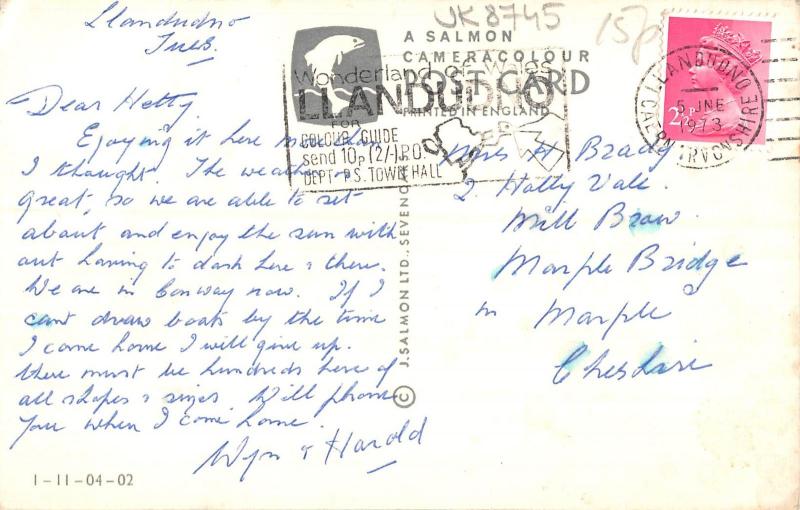 Llandudno
Tues.
Dear Hetty
Enjoying it here more than
I thought. The weather
great, so we are able to sit
about and enjoy the sun with
out having to dash here & there.
We are in Conway now. If I
cant draw boats by the time
I come home I will give up.
there must be hundreds here of
all shapes & sizes Will phone
you when I come home.
Wyn & Harold
1-11-04-02
UK8745
15p
A SALMON
CAMERACOLOUR
POST CARD
PRINTED IN ENGLAND
© J. SALMON LTD., SEVENO
Wonderland of Wales
LLANDUDNO
FOR
COLOUR GUIDE
send 10p (2/-) P.O.
DEPT P.S. TOWN HALL
2½P
LLANDUDNO
5 JNE
1973
CAERNARVONSHIRE
Mrs H Brady
2. Hatty Vale.
Mill Brow.
Marple Bridge
Nr Marple
Cheshire